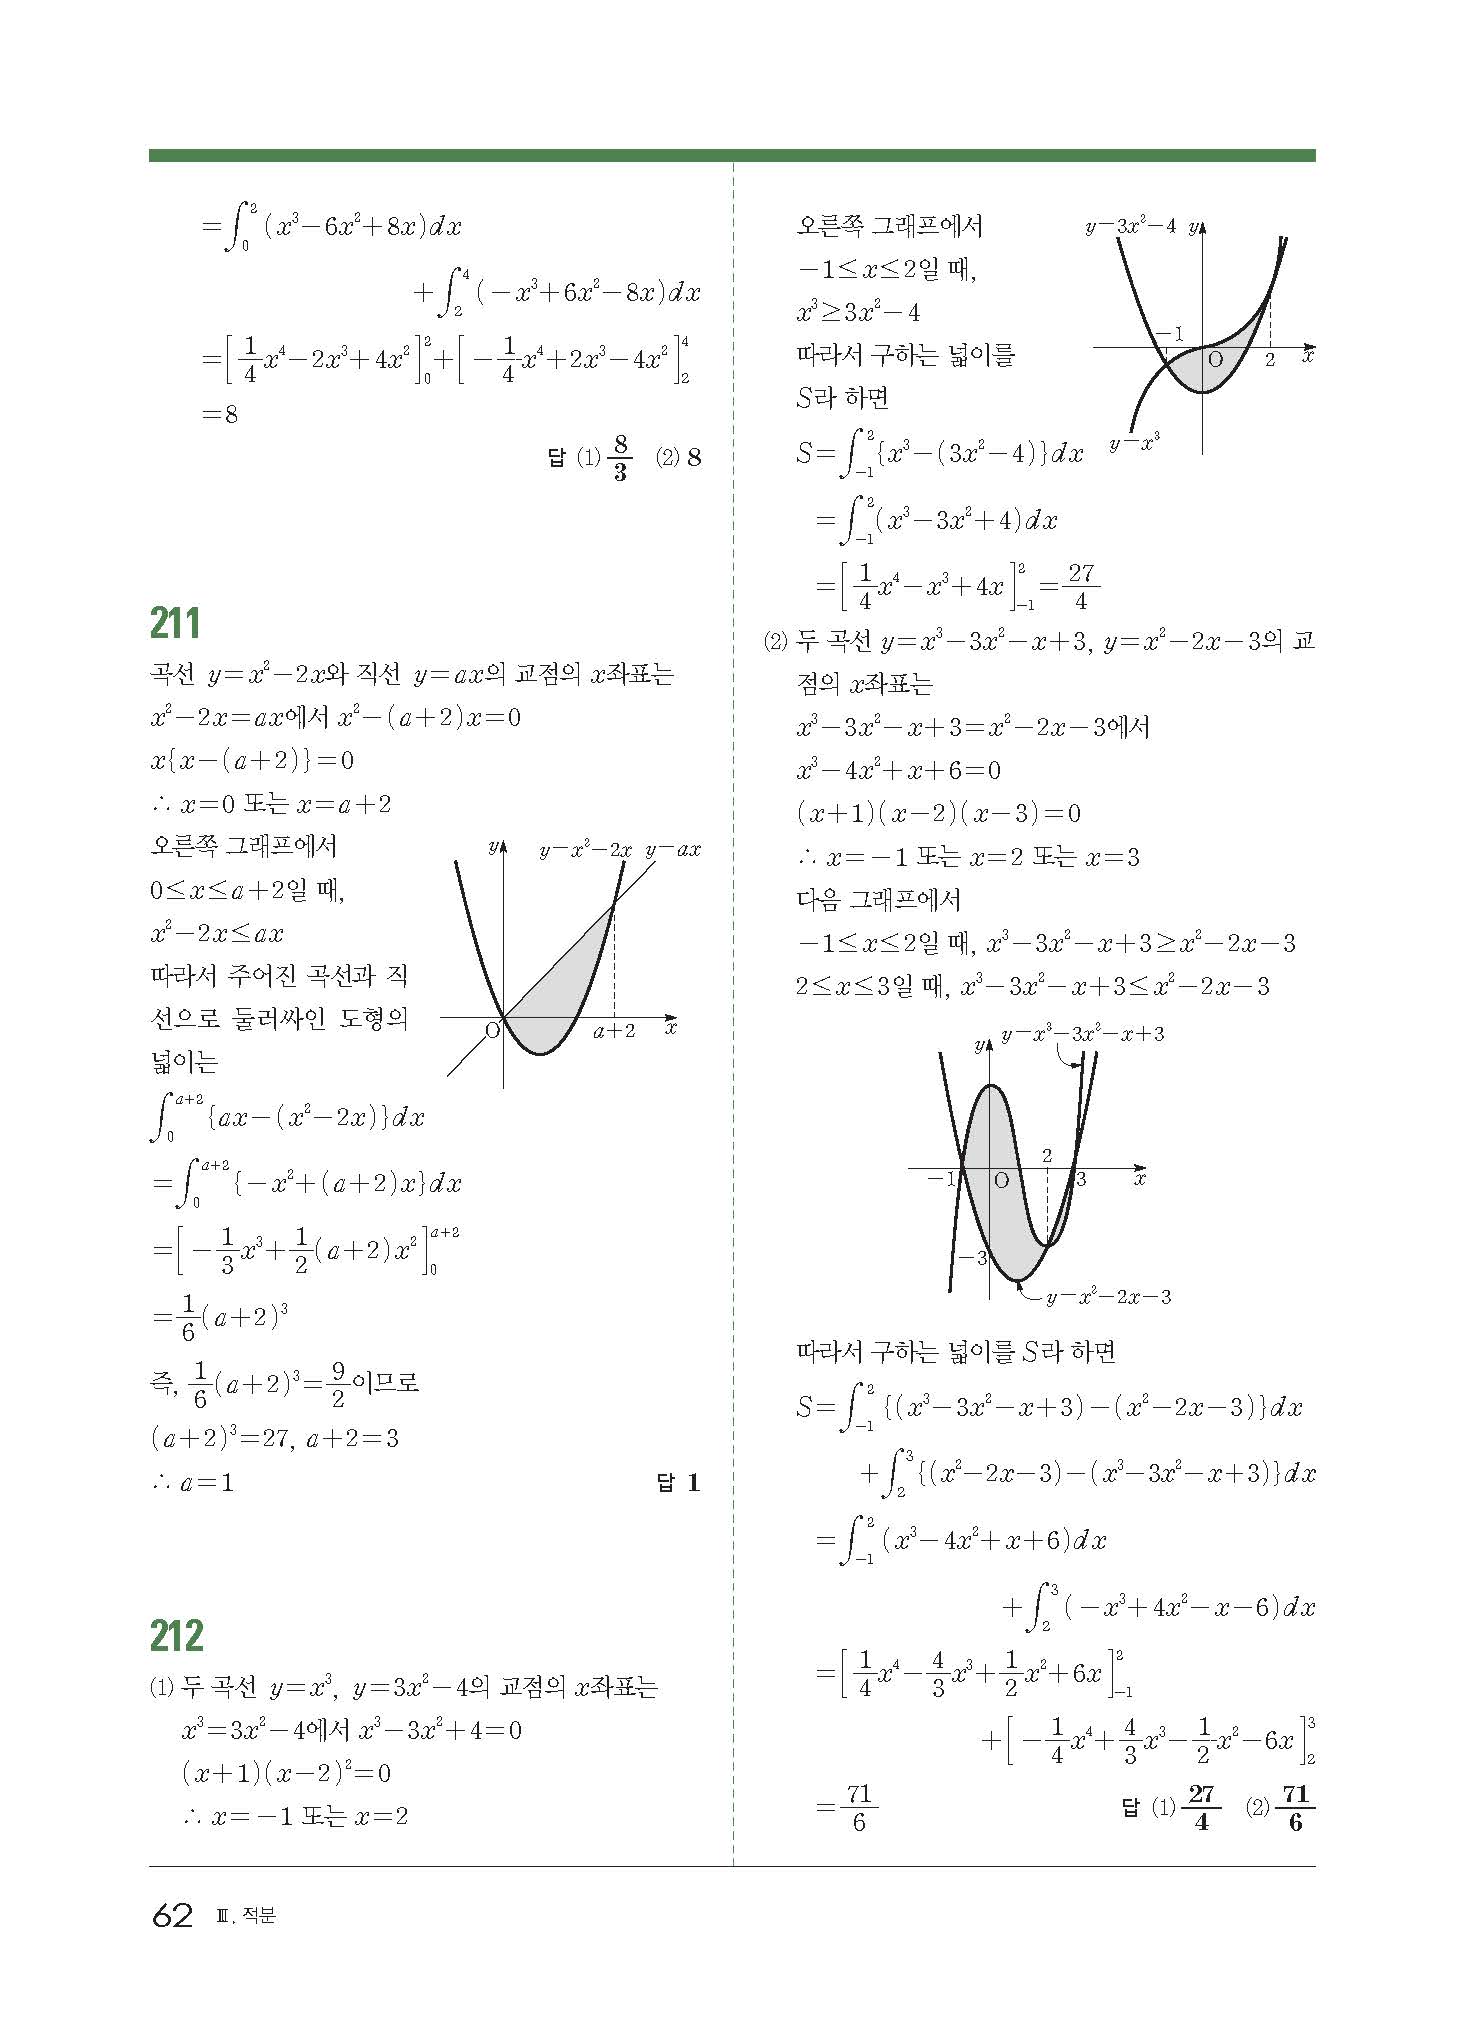 =∫₀² (x³-6x²+8x)dx
+∫₂⁴ (-x³+6x²-8x)dx
=[1/4 x⁴-2x³+4x²]₀²+[-1/4 x⁴+2x³-4x²]₂⁴
=8
답 (1) 8/3 (2) 8
211
곡선 y=x²-2x와 직선 y=ax의 교점의 x좌표는
x²-2x=ax에서 x²-(a+2)x=0
x{x-(a+2)}=0
∴ x=0 또는 x=a+2
오른쪽 그래프에서
0≤x≤a+2일 때,
x²-2x≤ax
따라서 주어진 곡선과 직
선으로 둘러싸인 도형의
넓이는
y y=x²-2x y=ax
O a+2 x
∫₀^(a+2) {ax-(x²-2x)}dx
=∫₀^(a+2) {-x²+(a+2)x}dx
=[-1/3 x³+1/2 (a+2)x²]₀^(a+2)
=1/6 (a+2)³
즉, 1/6 (a+2)³=9/2이므로
(a+2)³=27, a+2=3
∴ a=1 답 1
212
(1) 두 곡선 y=x³, y=3x²-4의 교점의 x좌표는
x³=3x²-4에서 x³-3x²+4=0
(x+1)(x-2)²=0
∴ x=-1 또는 x=2
오른쪽 그래프에서
-1≤x≤2일 때,
x³≥3x²-4
따라서 구하는 넓이를
S라 하면
y=3x²-4 y
-1
O 2 x
y=x³
S=∫₋₁² {x³-(3x²-4)}dx
=∫₋₁² (x³-3x²+4)dx
=[1/4 x⁴-x³+4x]₋₁²=27/4
(2) 두 곡선 y=x³-3x²-x+3, y=x²-2x-3의 교
점의 x좌표는
x³-3x²-x+3=x²-2x-3에서
x³-4x²+x+6=0
(x+1)(x-2)(x-3)=0
∴ x=-1 또는 x=2 또는 x=3
다음 그래프에서
-1≤x≤2일 때, x³-3x²-x+3≥x²-2x-3
2≤x≤3일 때, x³-3x²-x+3≤x²-2x-3
y=x³-3x²-x+3
y
2
-1 O 3 x
-3
y=x²-2x-3
따라서 구하는 넓이를 S라 하면
S=∫₋₁² {(x³-3x²-x+3)-(x²-2x-3)}dx
+∫₂³ {(x²-2x-3)-(x³-3x²-x+3)}dx
=∫₋₁² (x³-4x²+x+6)dx
+∫₂³ (-x³+4x²-x-6)dx
=[1/4 x⁴-4/3 x³+1/2 x²+6x]₋₁²
+[-1/4 x⁴+4/3 x³-1/2 x²-6x]₂³
=71/6 답 (1) 27/4 (2) 71/6
62 Ⅲ. 적분